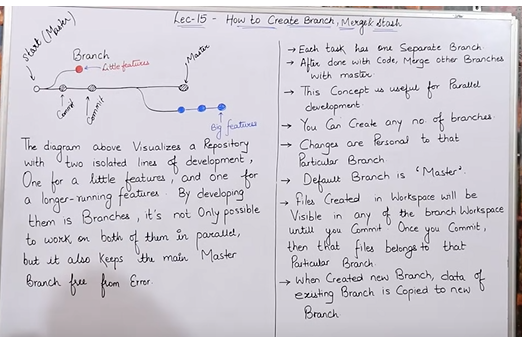 Lec-15 - How to Create Branch, Merge & Stash
Start (Master)
Branch
Little features
Master
Commit
Commit
Big features
The diagram above Visualizes a Repository
with two isolated lines of development,
One for a little features, and one for
a longer-running features. By developing
them is Branches, it's not Only possible
to work on both of them in parallel,
but it also keeps the main Master
Branch free from Error.
→ Each task has one Separate Branch
→ After done with Code, Merge other Branches
with master.
→ This Concept is useful for Parallel
development
→ You Can Create any no. of branches.
→ Changes are Personal to that
Particular Branch
→ Default Branch is 'Master'.
→ Files Created in Workspace will be
Visible in any of the branch Workspace
untill you Commit. Once you Commit,
then that files belongs to that
Particular Branch.
→ When Created new Branch, data of
existing Branch is Copied to new
Branch